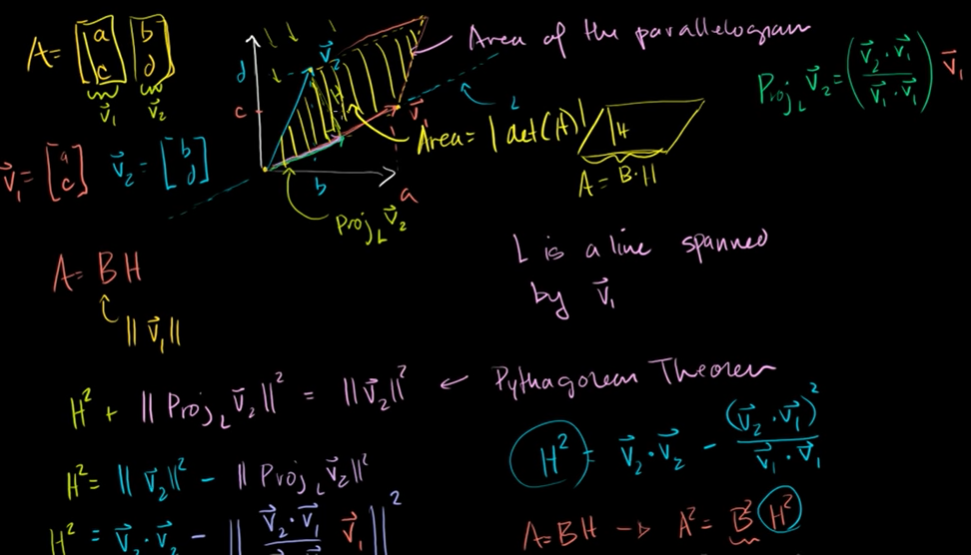 A = [a c] [b d]
v⃗₁ v⃗₂
v⃗₁ = [a c] v⃗₂ = [b d]
d
c
b
a
v⃗₂
v⃗₁
L
Proj_L v⃗₂
Area of the parallelogram
Area = |det(A)|
H
A = B·H
Proj_L v⃗₂ = (v⃗₂·v⃗₁ / v⃗₁·v⃗₁) v⃗₁
L is a line spanned
by v⃗₁
A = BH
||v⃗₁||
H² + ||Proj_L v⃗₂||² = ||v⃗₂||² ← Pythagorean Theorem
H² = ||v⃗₂||² - ||Proj_L v⃗₂||²
H² = v⃗₂·v⃗₂ - || v⃗₂·v⃗₁ / v⃗₁·v⃗₁ v⃗₁ ||²
H² = v⃗₂·v⃗₂ - (v⃗₂·v⃗₁)² / v⃗₁·v⃗₁
A = BH → A² = B² H²